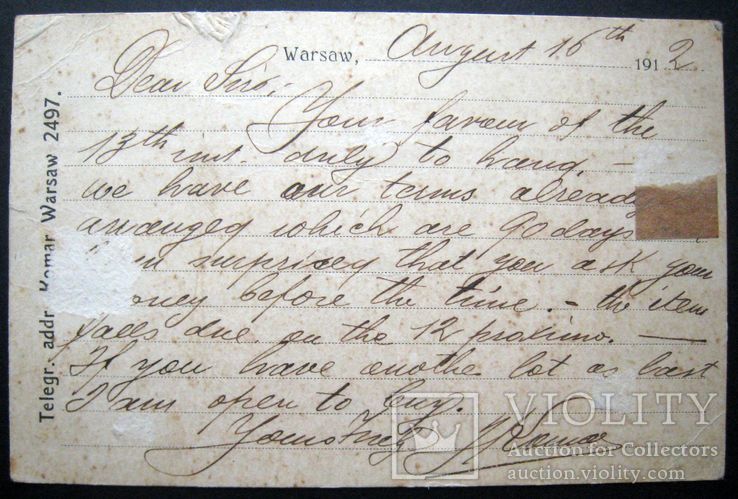 Warsaw, August 16th 1912
Dear Sir,
Your favour of the
13th inst. duly to hand, —
we have our terms already
arranged which are 90 days
I am surprised that you ask your
money before the time. — the item
falls due on the 12 proximo. —
If you have another lot as last
I am open to buy.
Yours truly
Telegr. addr. Komar Warsaw 2497.
VIOLITY
Auction for Collectors
auction.violity.com